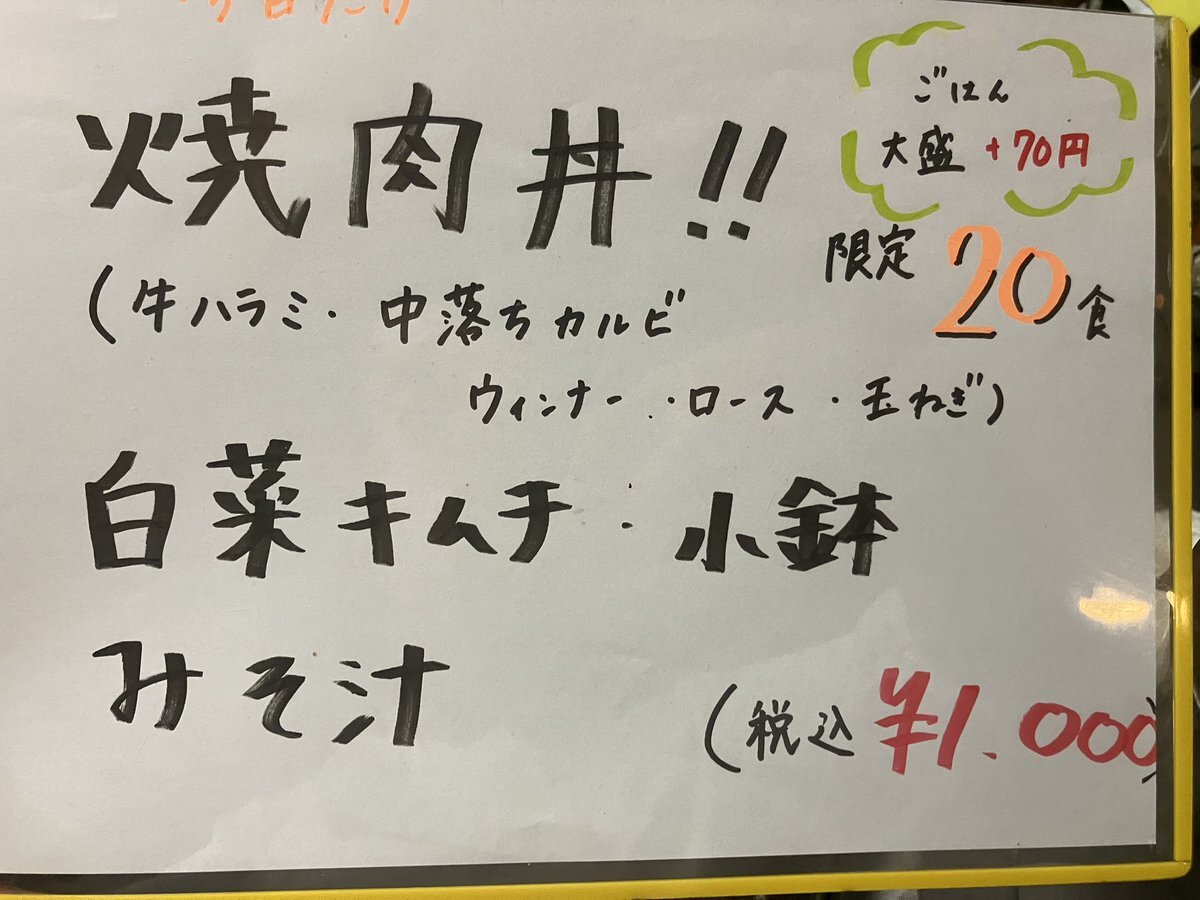 ごはん
大盛 +70円
焼肉丼!!
限定20食
(牛ハラミ・中落ちカルビ
ウィンナー・ロース・玉ねぎ)
白菜キムチ・小鉢
みそ汁
(税込¥1.000)